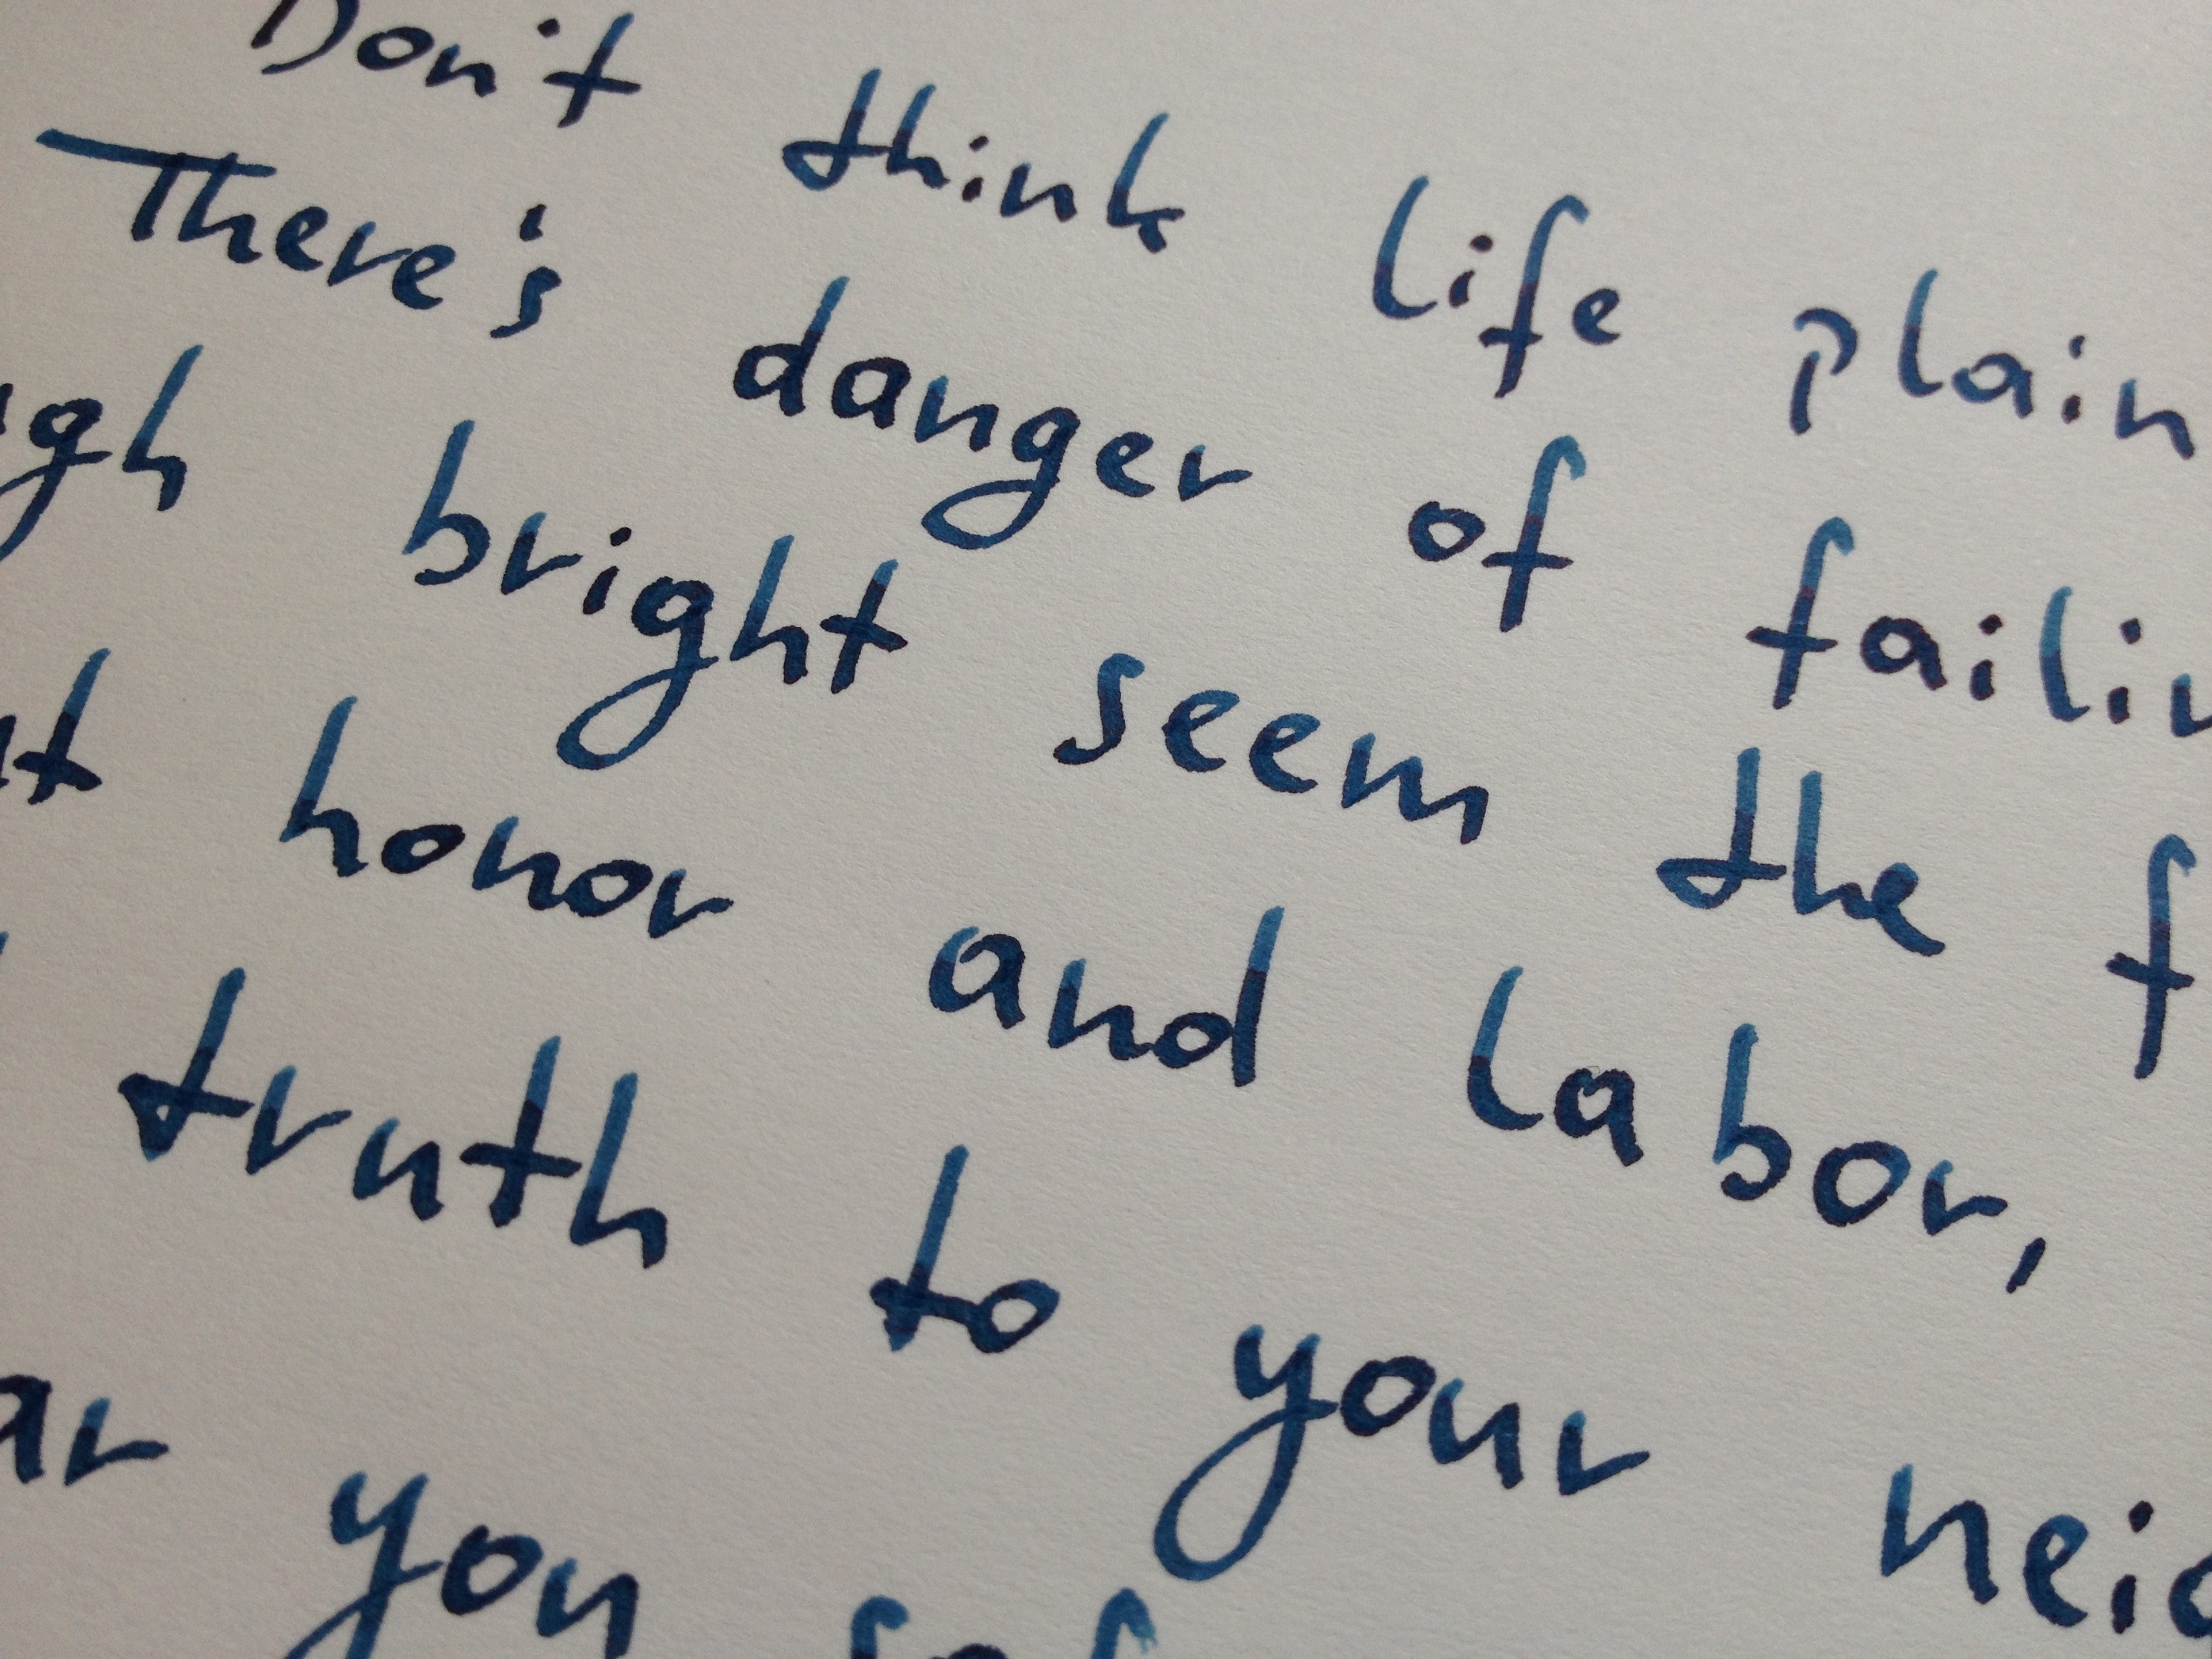 Don't think life plain
There's danger of failin
gh bright seem the f
t honor and labor,
truth to your neig
ar you saf